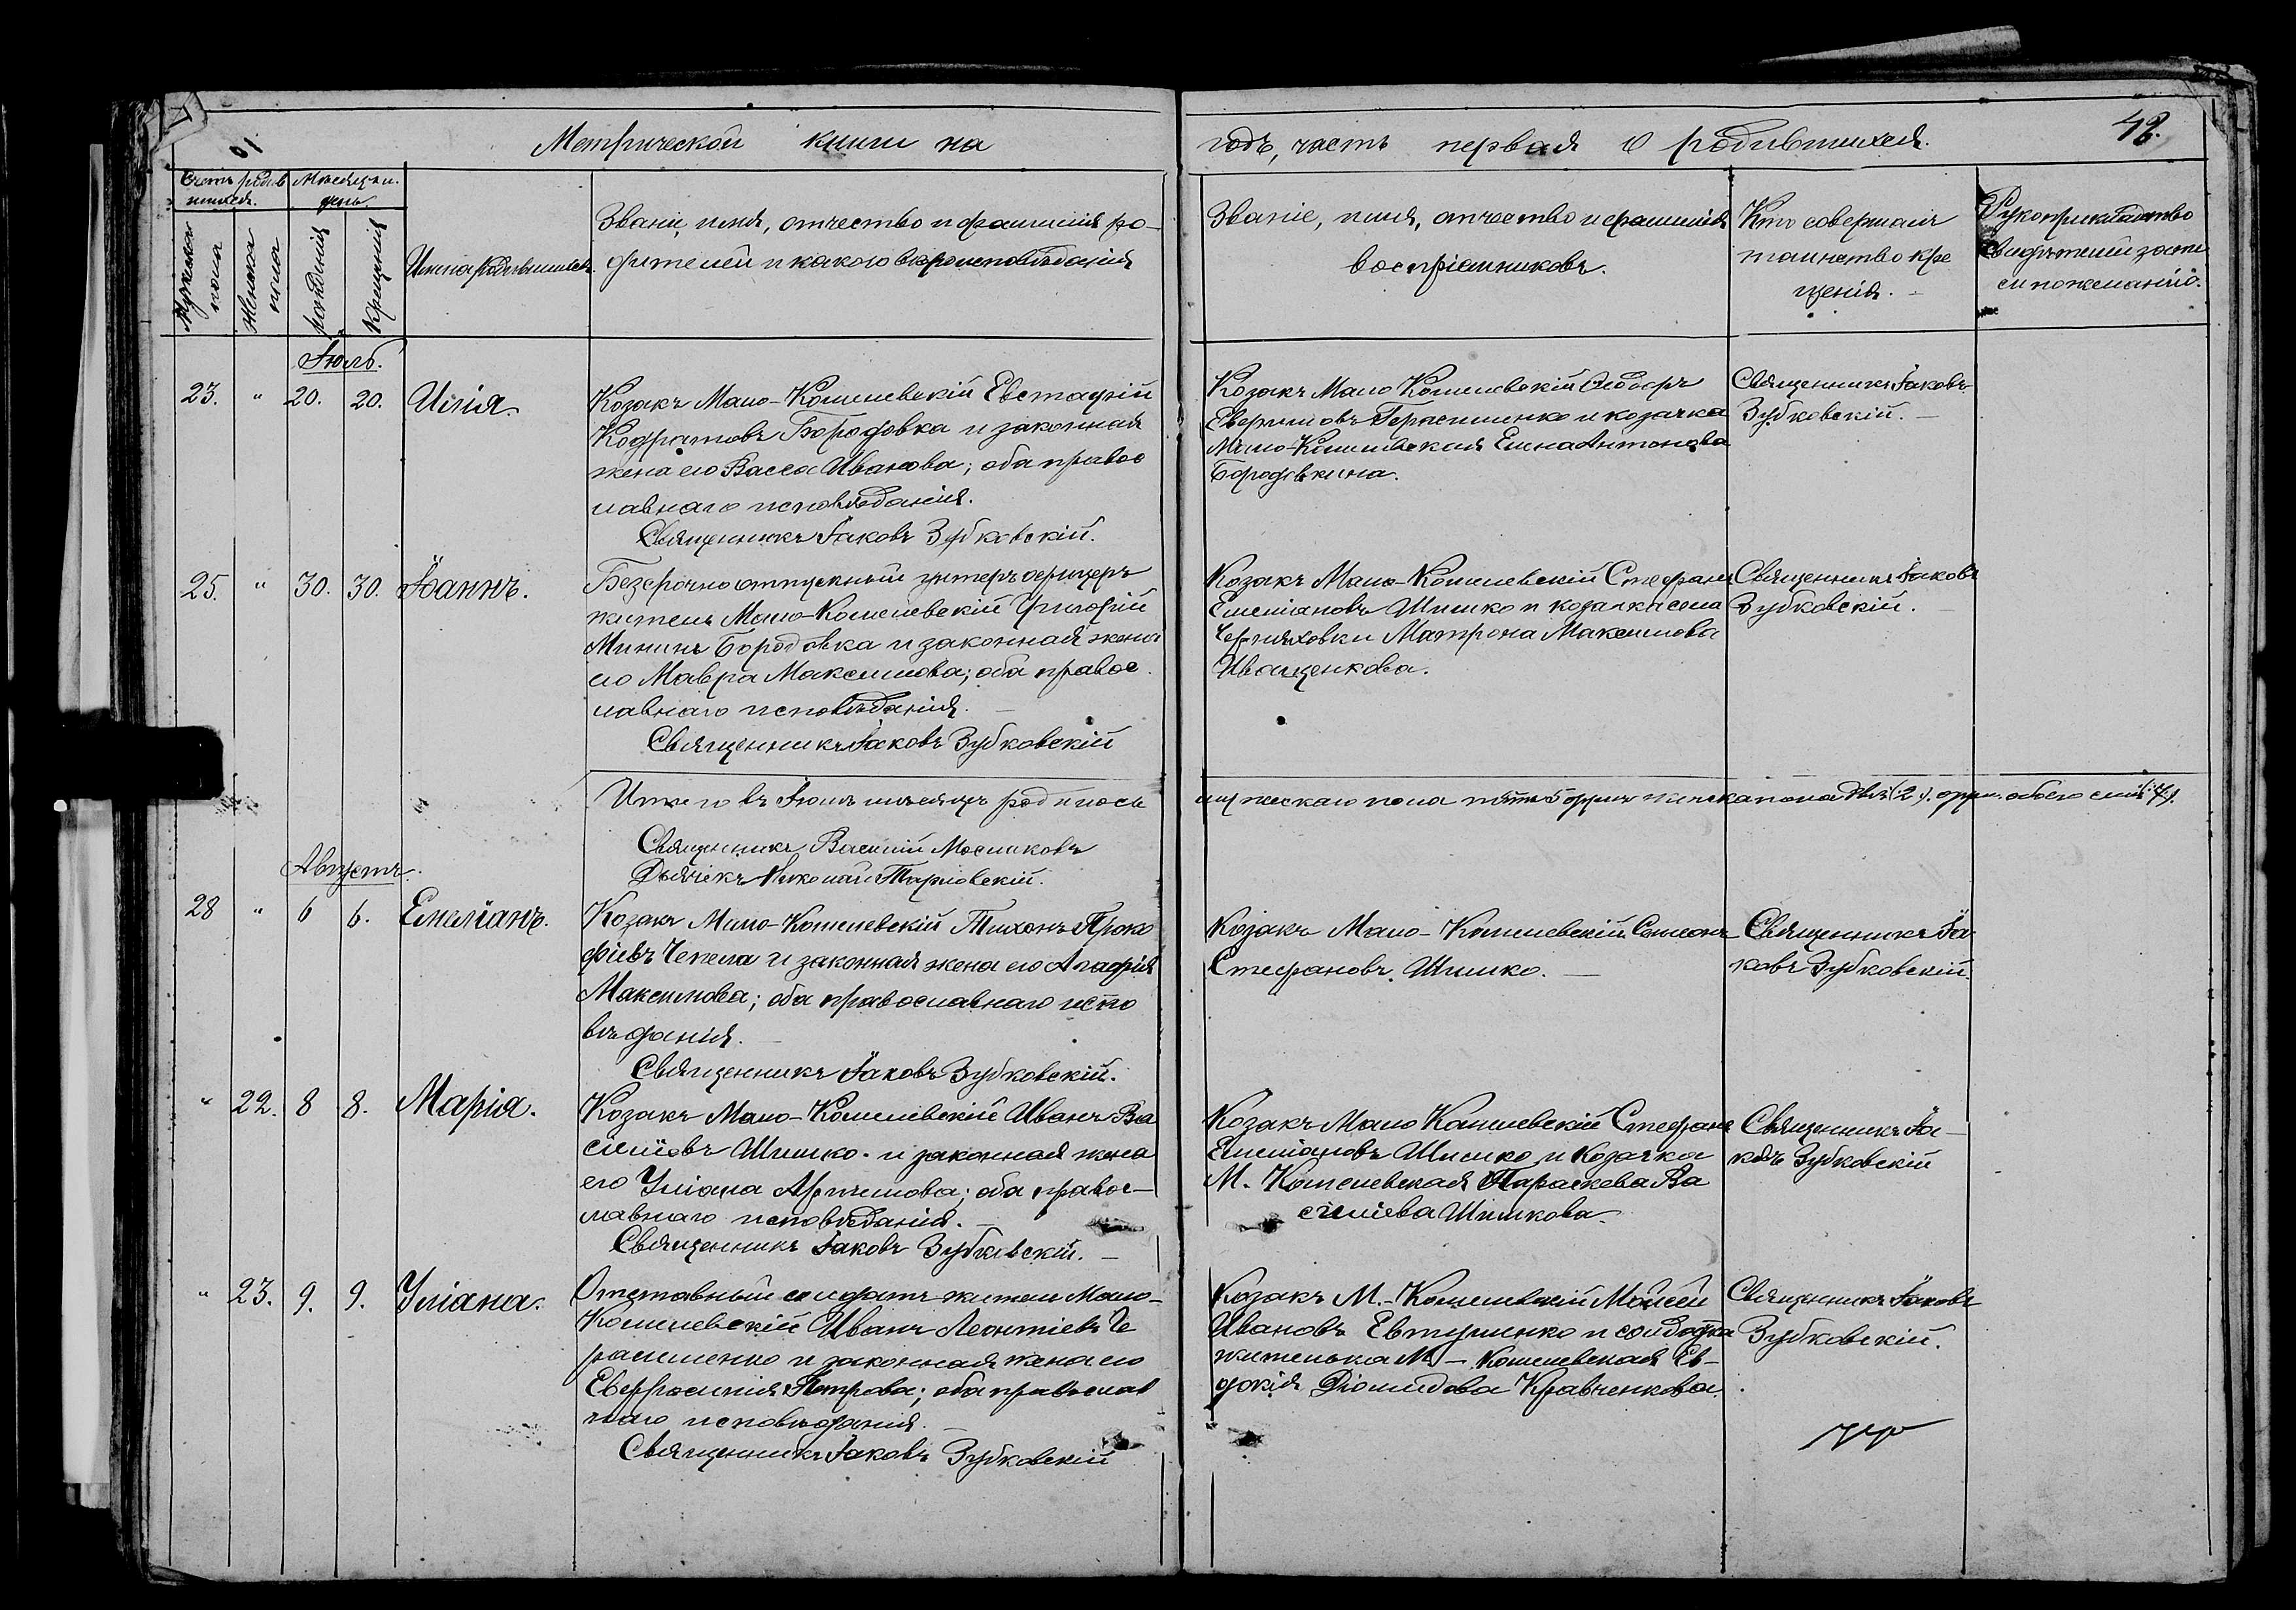 Метрической книги на
годъ, часть первая о родившихся.
48.
Счетъ родив
шихся.
Мѣсяцъ и
день.
Мужеска
пола
Женска
пола
рожденія
Крещенія
Имена родившихся.
Званіе, имя, отчество и фамилія ро-
дителей и какого вѣроисповѣданія
Званіе, имя, отчество и фамилія
воспріемниковъ.
Кто совершалъ
таинство кре
щенія.
Рукоприкладство
свидѣтелей запи
си по желанію.
Іюль.
23. " 20. 20. Илія
Козакъ Мало-Кошелевскій Евстафій
Кодратовъ Бородовка и законная
жена его Васса Иванова; оба правос
лавнаго исповѣданія.
Священникъ Іаковъ Зубковскій.
Козакъ Мало Кошелевскій Ѳеодоръ
Герасименко и козачка
Мало-Кошелевская Елена Антонова
Бородовкина.
Священникъ Іаковъ
Зубковскій.
25. " 30. 30. Іоаннъ.
Безсрочно отпускный унтеръ офицеръ
житель Мало-Кошелевскій
Мининъ Бородовка и законная жена
его Мавра Максимова; оба правос
лавнаго исповѣданія.
Священникъ Іаковъ Зубковскій
Козакъ Мало-Кошелевскій Стефанъ
Емеліановъ Шишко и козачка села
Черняховки Матрона Максимова
Иващенкова.
Священникъ Іаковъ
Зубковскій.
Итого въ Іюлѣ мѣсяцѣ родилось
мужескаго пола пять 5 женска пола двѣ (2). обоего семь (7).
Священникъ Василій
Дьячекъ Николай Тарновскій.
Августъ.
28 " 6 6. Емеліанъ.
Козакъ Мало-Кошелевскій Тихонъ Проко
фіевъ Чепела и законная жена его Агафія
Максимова; оба православнаго испо
вѣданія.
Священникъ Іаковъ Зубковскій.
Козакъ Мало-Кошелевскій Симеонъ
Стефановъ Шишко.
Священникъ Іа
ковъ Зубковскій.
" 22. 8 8. Марія.
Козакъ Мало-Кошелевскій Иванъ Ва
силіевъ Шишко и законная жена
его Уліана Артемова; оба правос-
лавнаго исповѣданія.
Священникъ Іаковъ Зубковскій.
Козакъ Мало Кошелевскій Стефанъ
Емеліановъ Шишко и Козачка
М. Кошелевская Параскева Ва
силіева Шишкова.
Священникъ Іа-
ковъ Зубковскій
" 23. 9. 9. Уліана.
Отставный солдатъ житель Мало-
Кошелевскій Иванъ Леонтіевъ Ге
расименко и законная жена его
Евфросинія Петрова; оба православ
наго исповѣданія
Священникъ Іаковъ Зубковскій
Козакъ М.-Кошелевскій Мойсей
Ивановъ Евтушенко и солдатка
жителька М-Кошелевская Ев-
докія Діомидова Кравченкова.
Священникъ Іаковъ
Зубковскій.